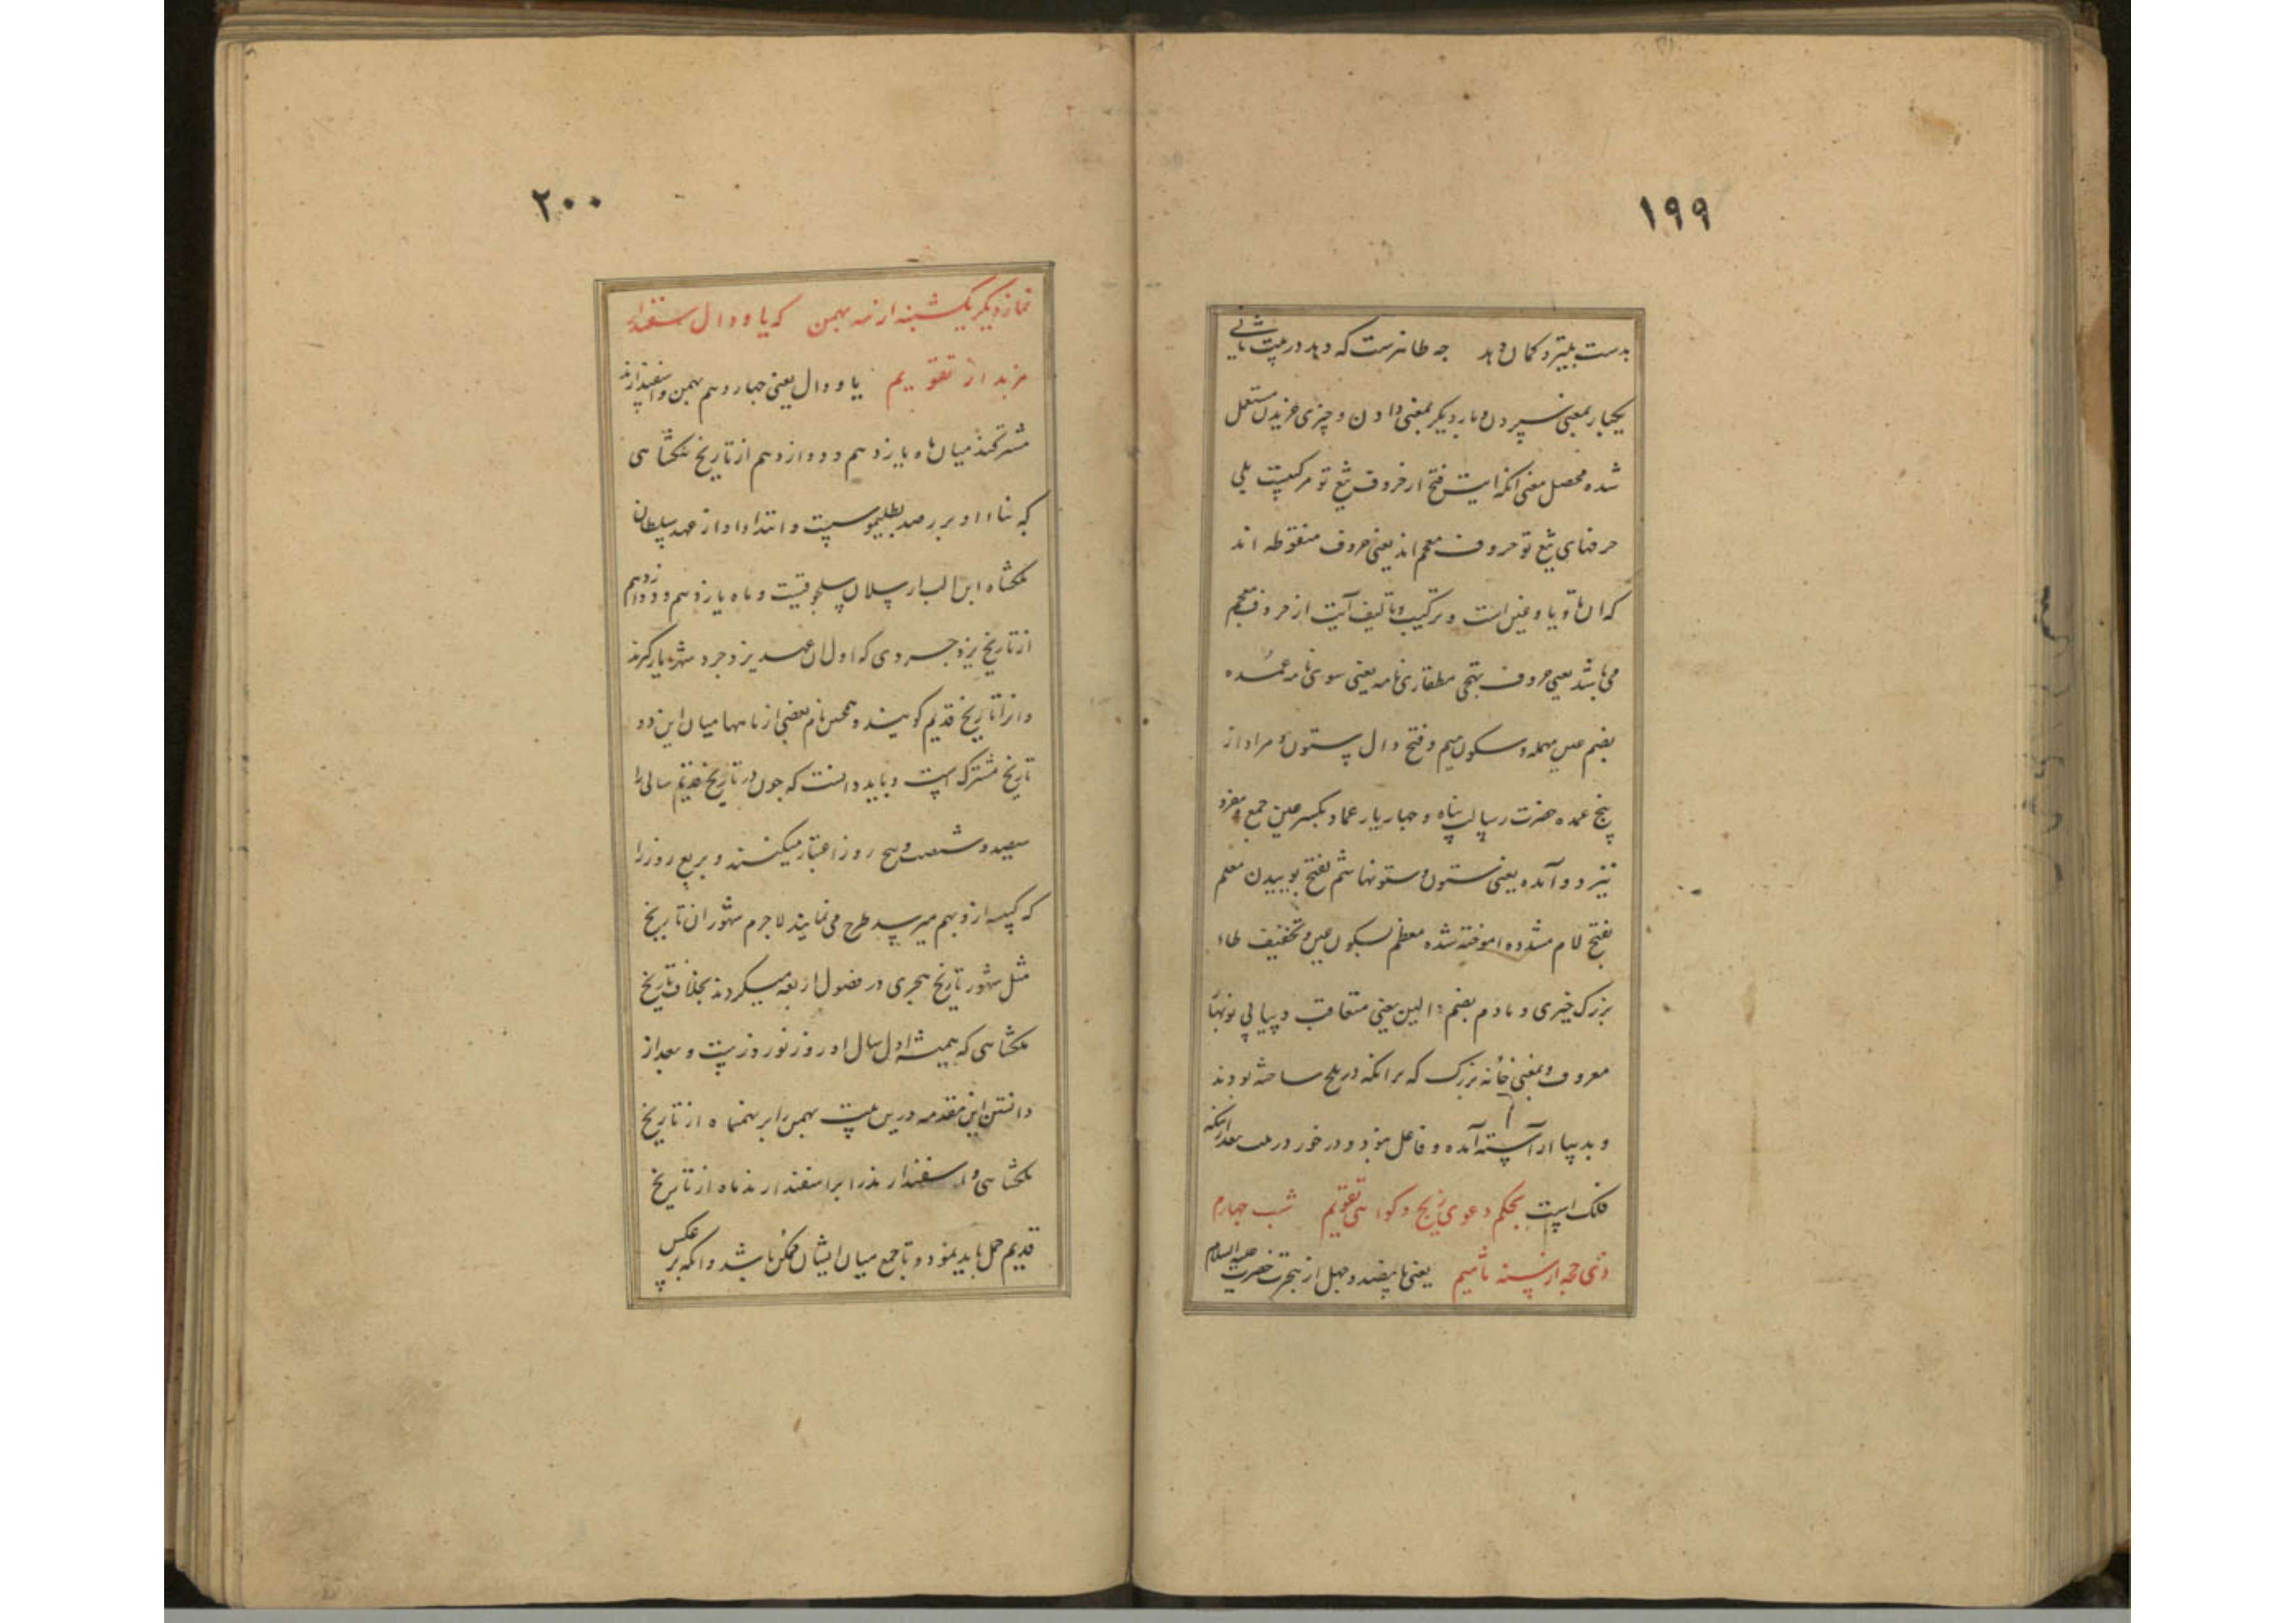 ۱۹۹
بدست بلیتر و کمان دهد چه طانرست که دهد در بیت ثانی
یکبار بمعنی سپردن و بار دیگر بمعنی دادن و چیزی خریدن مستعمل
شده محصل معنی آنکه آیت فتح از حروف تیغ تو مرکبست یلی
حرفهای تیغ تو حروف معجم اند یعنی حروف منقوطه اند
که ان تا و یا و غین است و ترکیب و تالیف آیت از حروف معجم
می باشد یعنی حروف تهجی مطفار نامه یعنی سوی نامه عمده
بضم عین مهمله و سکون میم و فتح دال ستون و مراد از
پنج عمده حضرت رسالت پناه و چهار یار عماد بکسر عین جمع و مفرد
نیز دو آمده یعنی ستون و ستونها شم بفتح بوییدن معلم
بفتح لام مشدده اموخته شده معظم بسکون عین و تخفیف ظاء
بزرگ چیزی و مادم بضم دالین یعنی متعاقب و پیاپی نوبهار
معروف و بمعنی خانه بزرگ که برامکه در بلخ ساخته بودند
و بدیها از آراسته آمده و فاعل نمود و در خور در بیت بعد ازینکه
فلک است بحکم دعوی زیج و گواهی تقویم شب چهارم
ذی حجه از سنه ثامیم یعنی پانصد و چهل از هجرت حضرت علیه السلام
۲۰۰
نماز دیگر یکشنبه از مه بهمن که یا و دال سفندار
مزبد از تقویم یا و دال یعنی چهاردهم بهمن و اسفندارمذ
مشترکند میان ماه یازدهم و دوازدهم از تاریخ ملکشاهی
که بناء او بر رصد بطلیموسیست و ابتداء او از عهد سلطان
ملکشاه ابن الب ارسلان سلجوقیست و ماه یازدهم و دوازدهم
از تاریخ یزدجردی که اول ان عهد یزدجرد شهریار گیرند
و انرا تاریخ قدیم گویند و همچنین نام بعضی از ماهها میان این دو
تاریخ مشترک است و باید دانست که چون در تاریخ قدیم سالی را
سیصد و شصت و پنج روز اعتبار میکنند و بربع روز را
که کبیسه از و بهم میرسد طرح می نمایند لاجرم شهور ان تاریخ
مثل شهور تاریخ هجری در فصول اربعه میگردند بخلاف تاریخ
ملکشاهی که همیشه اول سال او روز نوروزیست و بعد از
دانستن این مقدمه درین بیت بهمن را بر بهمنماه از تاریخ
ملکشاهی و اسفندارمذ را بر اسفندارمذماه از تاریخ
قدیم حمل باید نمود و تا جمع میان ایشان ممکن باشد و انکه بر عکس